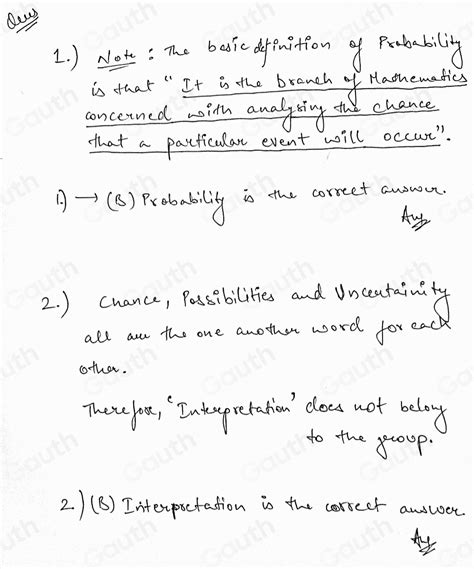 Ans
1.) Note : The basic definition of Probability
is that "It is the branch of Mathematics
concerned with analysing the chance
that a particular event will occur".
1.) → (B) Probability is the correct answer.
Ans
2.) Chance, Possibilities and Uncertainity
all are the one another word for each
other.
Therefore, 'Interpretation' does not belong
to the group.
2.) (B) Interpretation is the correct answer.
Ans
Gauth